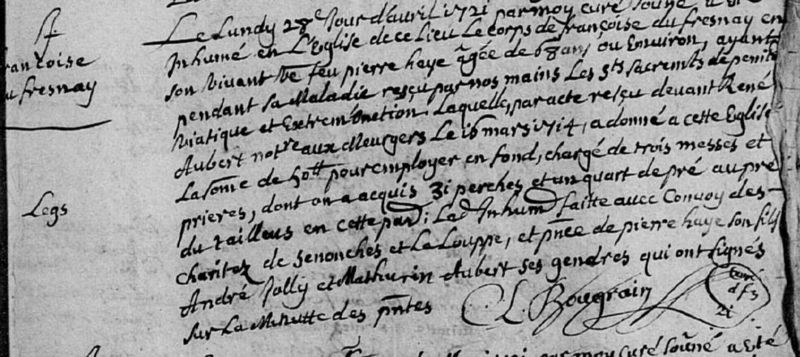 Françoise
du fresnay
Legs
Le Lundy 28e Jour d'avril 1721 par moy curé souné a été
Inhumé en L'Eglise de ce Lieu Le corps de françoise du fresnay en
son vivant ve feu pierre haye agée de 68 ans, ou Environ, ayant
pendant sa Maladie reçu par nos mains Les Sts Sacremts de penite
Viatique et Extremonction, Laquelle, par acte reçu devant René
Aubert notre aux Meurgers Le 16 mars 1714, a donné a cette Eglise
La some de 50tt pour employer en fond, chargé de trois messes et
prieres, dont on a acquis 31 perches et un quart de pré au pré
du tailleus en cette par; Lad Inhumôn faitte avec Convoy des
charitez de Senonches et La Louppe, et pnce de pierre haye son fils
André Jolly et Mathurin Aubert ses gendres qui ont signés
sur La Minutte des pntes L. Bougrain